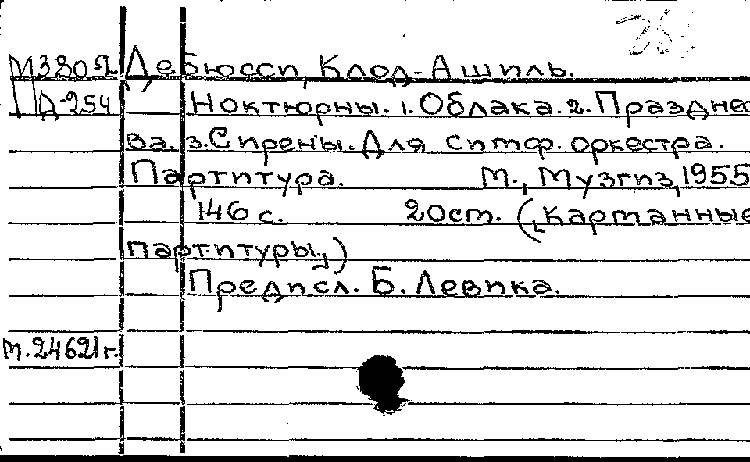 М380Л Дебюсси, Клод-Ашиль.
Д-254 Ноктюрны. 1. Облака. 2. Праздне
ва. 3. Сирены. Для симф. оркестра.
Партитура. М., Музгиз, 1955
146 с. 20 ст. („Карманные
партитуры„)
Предисл. Б. Левика.
М. 24621 г.